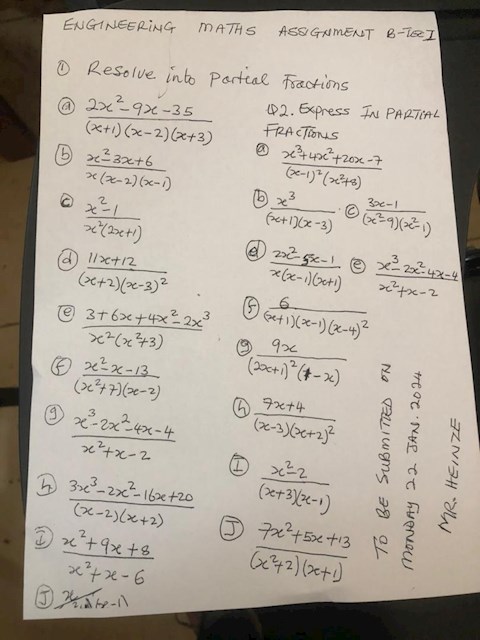 ENGINEERING MATHS ASSIGNMENT B-Tec I
① Resolve into Partial Fractions
ⓐ (2x²-9x-35)/((x+1)(x-2)(x+3))
ⓑ (x²-3x+6)/(x(x-2)(x-1))
ⓒ (x²-1)/(x²(2x+1))
ⓓ (11x+12)/((x+2)(x-3)²)
ⓔ (3+6x+4x²-2x³)/(x²(x²+3))
ⓕ (x²-x-13)/((x²+7)(x-2))
ⓖ (x³-2x²-4x-4)/(x²+x-2)
ⓗ (3x³-2x²-16x+20)/((x-2)(x+2))
Ⓘ (x²+9x+8)/(x²+x-6)
Ⓙ
Q2. Express IN PARTIAL
FRACTIONS
ⓐ (x³+4x²+20x-7)/((x-1)²(x²+8))
ⓑ x³/((x+1)(x-3)) ⓒ (3x-1)/((x²-9)(x²-1))
ⓓ (2x²-5x-1)/(x(x-1)(x+1)) ⓔ (x³-2x²-4x-4)/(x²+x-2)
ⓕ 6/((x+1)(x-1)(x-4)²)
ⓖ 9x/((2x+1)²(1-x))
ⓗ (7x+4)/((x-3)(x+2)²)
Ⓘ (x²-2)/((x+3)(x-1))
Ⓙ (7x²+5x+13)/((x²+2)(x+1))
TO BE SUBMITTED ON
MONDAY 22 JAN. 2024
MR. HEINZE